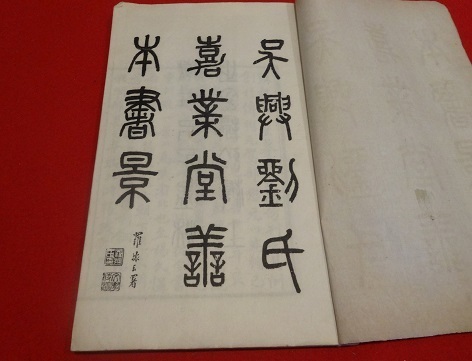 吳興劉氏
嘉業堂善
本書景
羅振玉署